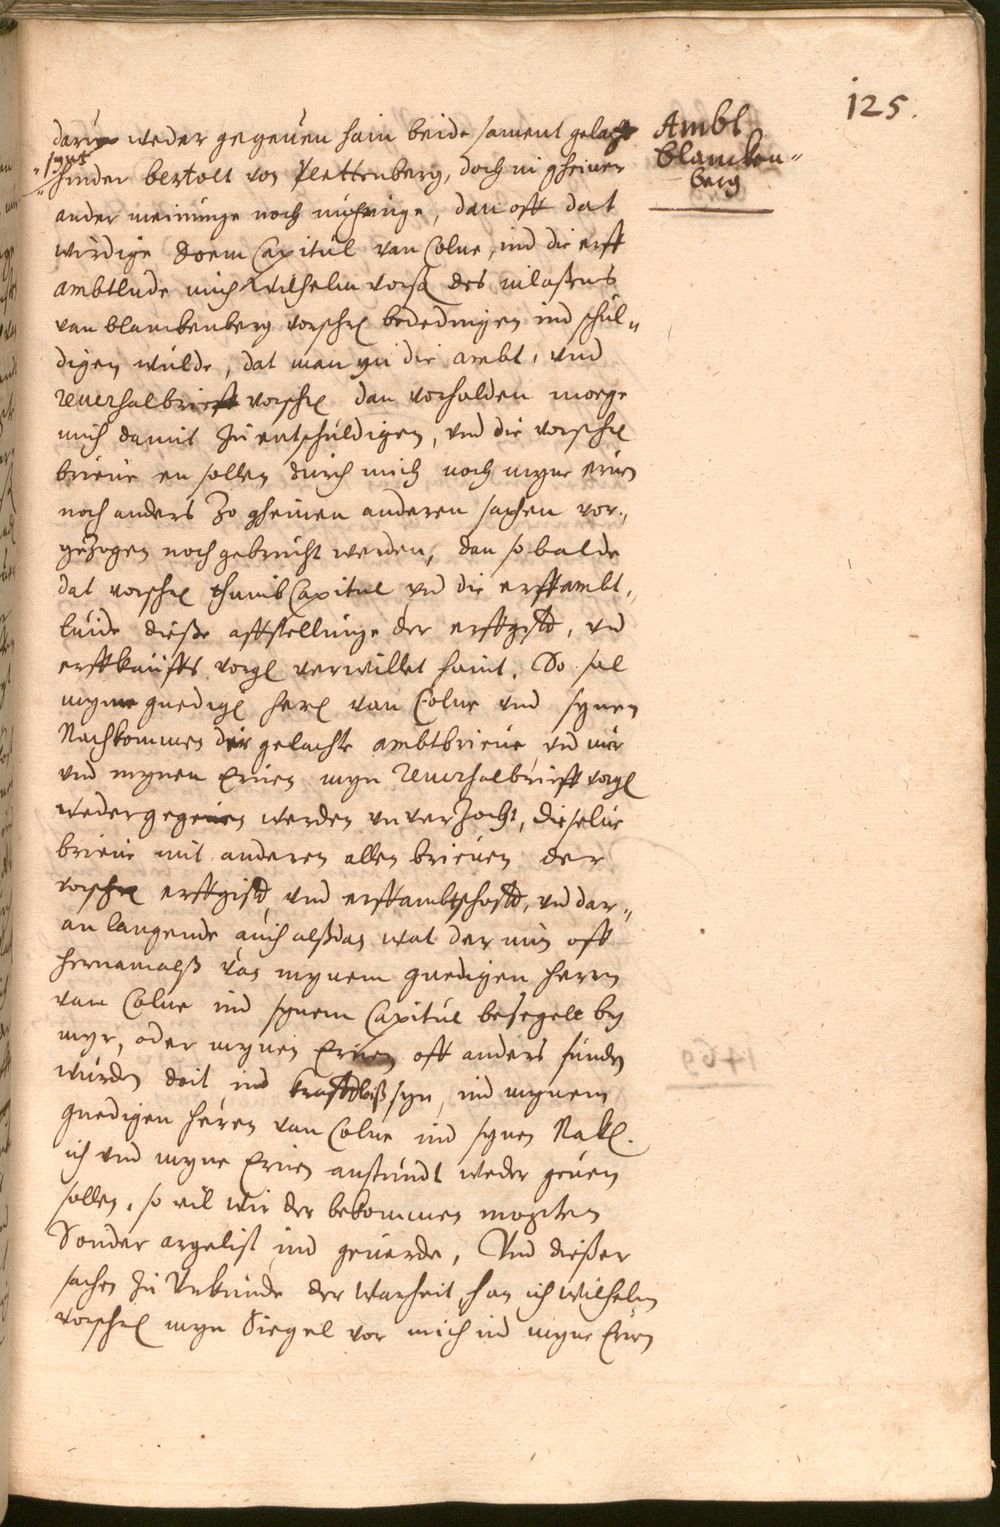 125.
Ambt
blancken„
berg
darup weder gegeuen hain beide sament gelacht
synt
hinder bertolt von Plettenberg, doch in gheiner
ander meinunge noch maneringe, dan oft dat
wirdige Doem Capitul van Colne, ind die erff
ambtlude mich Wilhelm vorß des inlaßens
van blanckenberg vorschrl bededingen ind schul„
digen wulde, dat man yn die ambt, vnd
reuersalbrieff vorschrl dan vorhalden moege
mich damit zu entschuldigen, vnd die vorschrl
brieue en sollen durch mich noch myne eruen
noch anders zo gheinen anderen sachen vor„
gezogen noch gebrucht werden, dan so balde
dat vorschrl thumb Capitul vnd die erffambt„
luide dieße affstellunge der erffgistd, vnd
erffkauffs vorgl verwillet haint. So sal
myme gnedigl herl van Colne vnd synen
Nachkommen die gelachte ambtbrieue, vnd mir
vnd mynen Eruen myn Reuersalbrieff vorgl
wedergegeuen werden vnverzocht, dieselue
brieue mit anderen allen brieuen der
vorschrl erffgistd, vnd erffambtschafftd, vnd dar„
an langende auch alßdan wat der nun oft
hernamalß van mynem gnedigen herrn
van Colne ind synem Capitul besegelt by
myr, oder mynen Eruen oft anders funden
wurden doit ind krafftloiß syn, ind mynem
gnedigen heren van Colne ind synen Nakl.
ich vnd myne Eruen anstundt weder geuen
sollen, so vil wir der bekommen mochten
Sonder argelist ind geuerde, Vnd dießer
sachen zu Vrkunde der warheit han ich Wilhelm
vorschrl myn Siegel vor mich ind myne Eruen